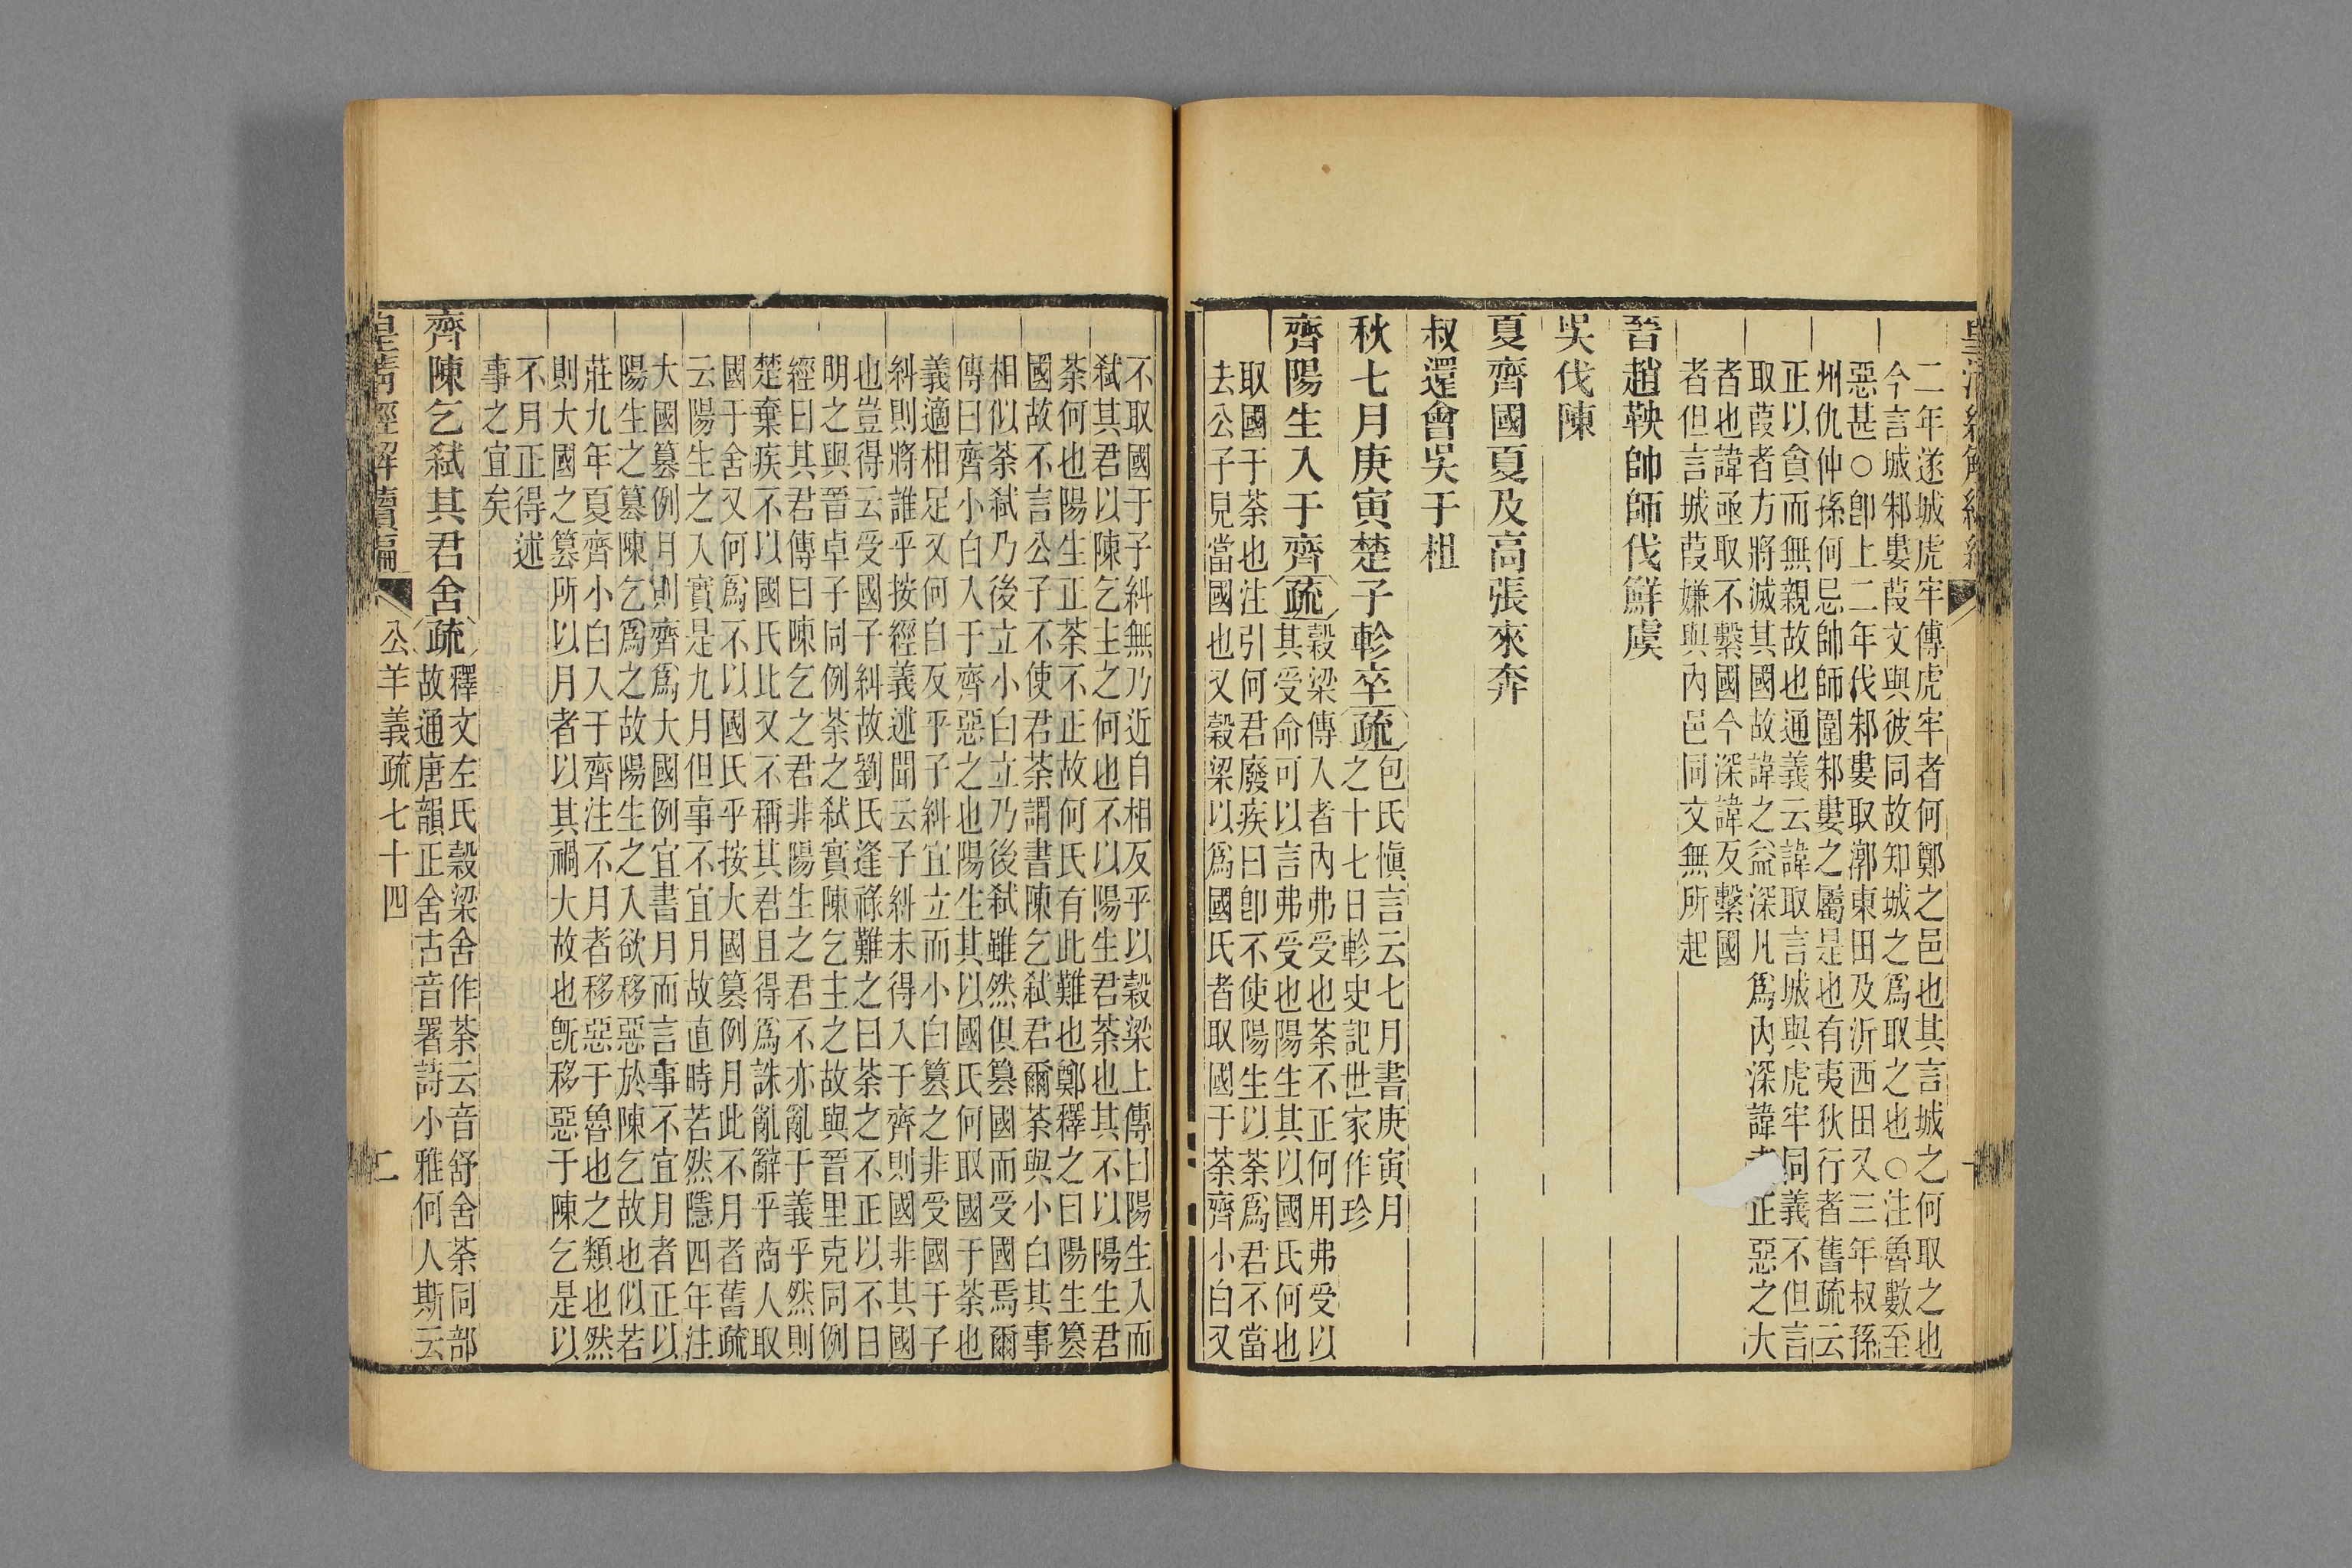 二年遂城虎牢傳虎牢者何鄭之邑也其言城之何取之也
今言城邾婁葭文與彼同故知城之爲取之也○注魯數至
惡甚○卽上二年伐邾婁取漷東田及沂西田又三年叔孫
州仇仲孫何忌帥師圍邾婁之屬是也有夷狄行者舊疏云
正以貪而無親故也通義云諱取言城與虎牢同義不但言
取葭者方將滅其國故諱之益深凡爲內深諱者正惡之大
者也諱亟取不繫國今深諱反繫國
者但言城葭嫌與內邑同文無所起
晉趙鞅帥師伐鮮虞
吳伐陳
夏齊國夏及高張來奔
叔還會吳于柤
秋七月庚寅楚子軫卒疏包氏愼言云七月書庚寅月
之十七日軫史記世家作珍
齊陽生入于齊疏穀梁傳入者內弗受也荼不正何用弗受以
其受命可以言弗受也陽生其以國氏何也
取國于荼也注引何君廢疾曰卽不使陽生以荼爲君不當
去公子見當國也又穀梁以爲國氏者取國于荼齊小白又
不取國于子糾無乃近自相反乎以穀梁上傳曰陽生入而
弒其君以陳乞主之何也不以陽生君荼也其不以陽生君
荼何也陽生正荼不正故何氏有此難也鄭釋之曰陽生篡
國故不言公子不使君荼謂書陳乞弒君爾荼與小白其事
相似荼弒乃後立小白立乃後弒雖然俱篡國而受國焉爾
傳曰齊小白入于齊惡之也陽生其以國氏何取國于荼也
義適相足又何自反乎子糾宜立而小白篡之非受國于子
糾則將誰乎按經義述聞云子糾未得入于齊則國非其國
也豈得云受國子糾故劉氏逢祿難之曰荼之不正以不日
明之與晉卓子同例荼之弒實陳乞主之故與晉里克同例
經曰其君傳曰陳乞之君非陽生之君不亦亂于義乎然則
楚棄疾不以國氏此又不稱其君且得爲誅亂辭乎商人取
國于舍又何爲不以國氏乎按大國篡例月此不月者舊疏
云陽生之入實是九月但事不宜月故直時若然隱四年注
大國篡例月則齊爲大國例宜書月而言事不宜月者正以
陽生之篡陳乞爲之故陽生之入欲移惡於陳乞故也似若
莊九年夏齊小白入于齊注不月者移惡于魯也之類也然
則大國之篡所以月者以其禍大故也旣移惡于陳乞是以
不月正得述
事之宜矣
齊陳乞弒其君舍疏釋文左氏穀梁舍作荼云音舒舍荼同部
故通唐韻正舍古音署詩小雅何人斯云
皇清經解續編 公羊義疏七十四 二